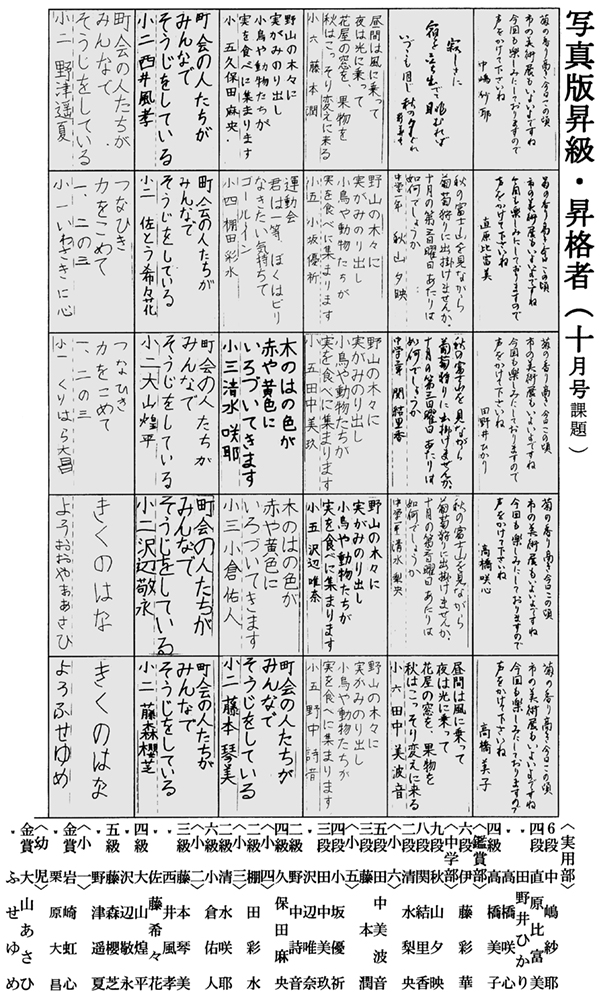 写真版昇級・昇格者（十月号課題）
菊の香り高き今日この頃
市の美術展もいよいよですね
今回も楽しみにしておりますので
声をかけて下さいね
中嶋紗耶
寂しさに
宿を立ち出て眺むれば
いづこも同じ秋の夕ぐれ
昼間は風に乗って
夜は光に乗って
花屋の窓を、果物を
秋はこっそり変えに来る
小六 藤本潤
野山の木々に
実がみのり出し
小鳥や動物たちが
実を食べに集まります
小五 久保田麻央
町会の人たちが
みんなで
そうじをしている
小二 西井風孝
町会の人たちが
みんなで
そうじをしている
小二 野津遥夏
菊の香り高き今日この頃
市の美術展もいよいよですね
今回も楽しみにしておりますので
声をかけて下さいね
直原比富美
秋の富士山を見ながら
葡萄狩りに出掛けませんか、
十月の第三日曜日あたりは
如何でしょうか
中学二年 秋山夕映
野山の木々に
実がみのり出し
小鳥や動物たちが
実を食べに集まります
小五 小坂優祈
運動会
君は一等、ぼくはビリ
なきたい気持ちで
ゴールイン
小四 棚田彩水
町会の人たちが
みんなで
そうじをしている
小二 佐とう希々花
つなひき
力をこめて
一、二の三
小一 いわさきに心
菊の香り高き今日この頃
市の美術展もいよいよですね
今回も楽しみにしておりますので
声をかけて下さいね
田野井ひかり
秋の富士山を見ながら
葡萄狩りに出掛けませんか、
十月の第三日曜日あたりは
如何でしょうか
関結里香
野山の木々に
実がみのり出し
小鳥や動物たちが
実を食べに集まります
小五 田中美玖
木のはの色が
赤や黄色に
いろづいてきます
小三 清水咲耶
町会の人たちが
みんなで
そうじをしている
小二 大山煌平
つなひき
力をこめて
一、二の三
小一 くりはら大昌
菊の香り高き今日この頃
市の美術展もいよいよですね
今回も楽しみにしておりますので
声をかけて下さいね
高橋咲心
秋の富士山を見ながら
葡萄狩りに出掛けませんか、
十月の第三日曜日あたりは
如何でしょうか
清水梨央
野山の木々に
実がみのり出し
小鳥や動物たちが
実を食べに集まります
小五 沢辺唯奈
木のはの色が
赤や黄色に
いろづいてきます
小三 小倉佑人
町会の人たちが
みんなで
そうじをしている
小二 沢辺敬永
きくのはな
よう おおやまあさひ
菊の香り高き今日この頃
市の美術展もいよいよですね
今回も楽しみにしておりますので
声をかけて下さいね
高橋美子
昼間は風に乗って
夜は光に乗って
花屋の窓を、果物を
秋はこっそり変えに来る
小六 田中美波音
野山の木々に
実がみのり出し
小鳥や動物たちが
実を食べに集まります
小五 野中詩音
町会の人たちが
みんなで
そうじをしている
小二 藤本琴美
町会の人たちが
みんなで
そうじをしている
小二 藤森櫻芝
きくのはな
よう ふせゆめ
〈実用部〉
6段 中嶋紗耶
四段 直原比富美
〃 田野井ひかり
〃 高橋咲心
四級 高橋美子
〈鑑賞部〉
六段 伊藤彩華
〈中学部〉
九段 秋山夕映
八段 関結里香
二段 清水梨央
〈小六〉
五段 田中美波音
三段 藤本潤
〈小五〉
四段 小坂優祈
三段 田中美玖
〃 沢辺唯奈
二級 野中詩音
四級 久保田麻央
〈小四〉
二級 棚田彩水
〈小三〉
二級 清水咲耶
六級 小倉佑人
〈小二〉
三級 藤本琴美
〃 西井風孝
〃 佐藤希々花
四級 大山煌平
〃 沢辺敬永
五級 藤森櫻芝
〃 野津遥夏
〈小一〉
金賞 岩崎虹心
〃 栗原大昌
〈幼児〉
金賞 大山あさひ
〃 ふせゆめ